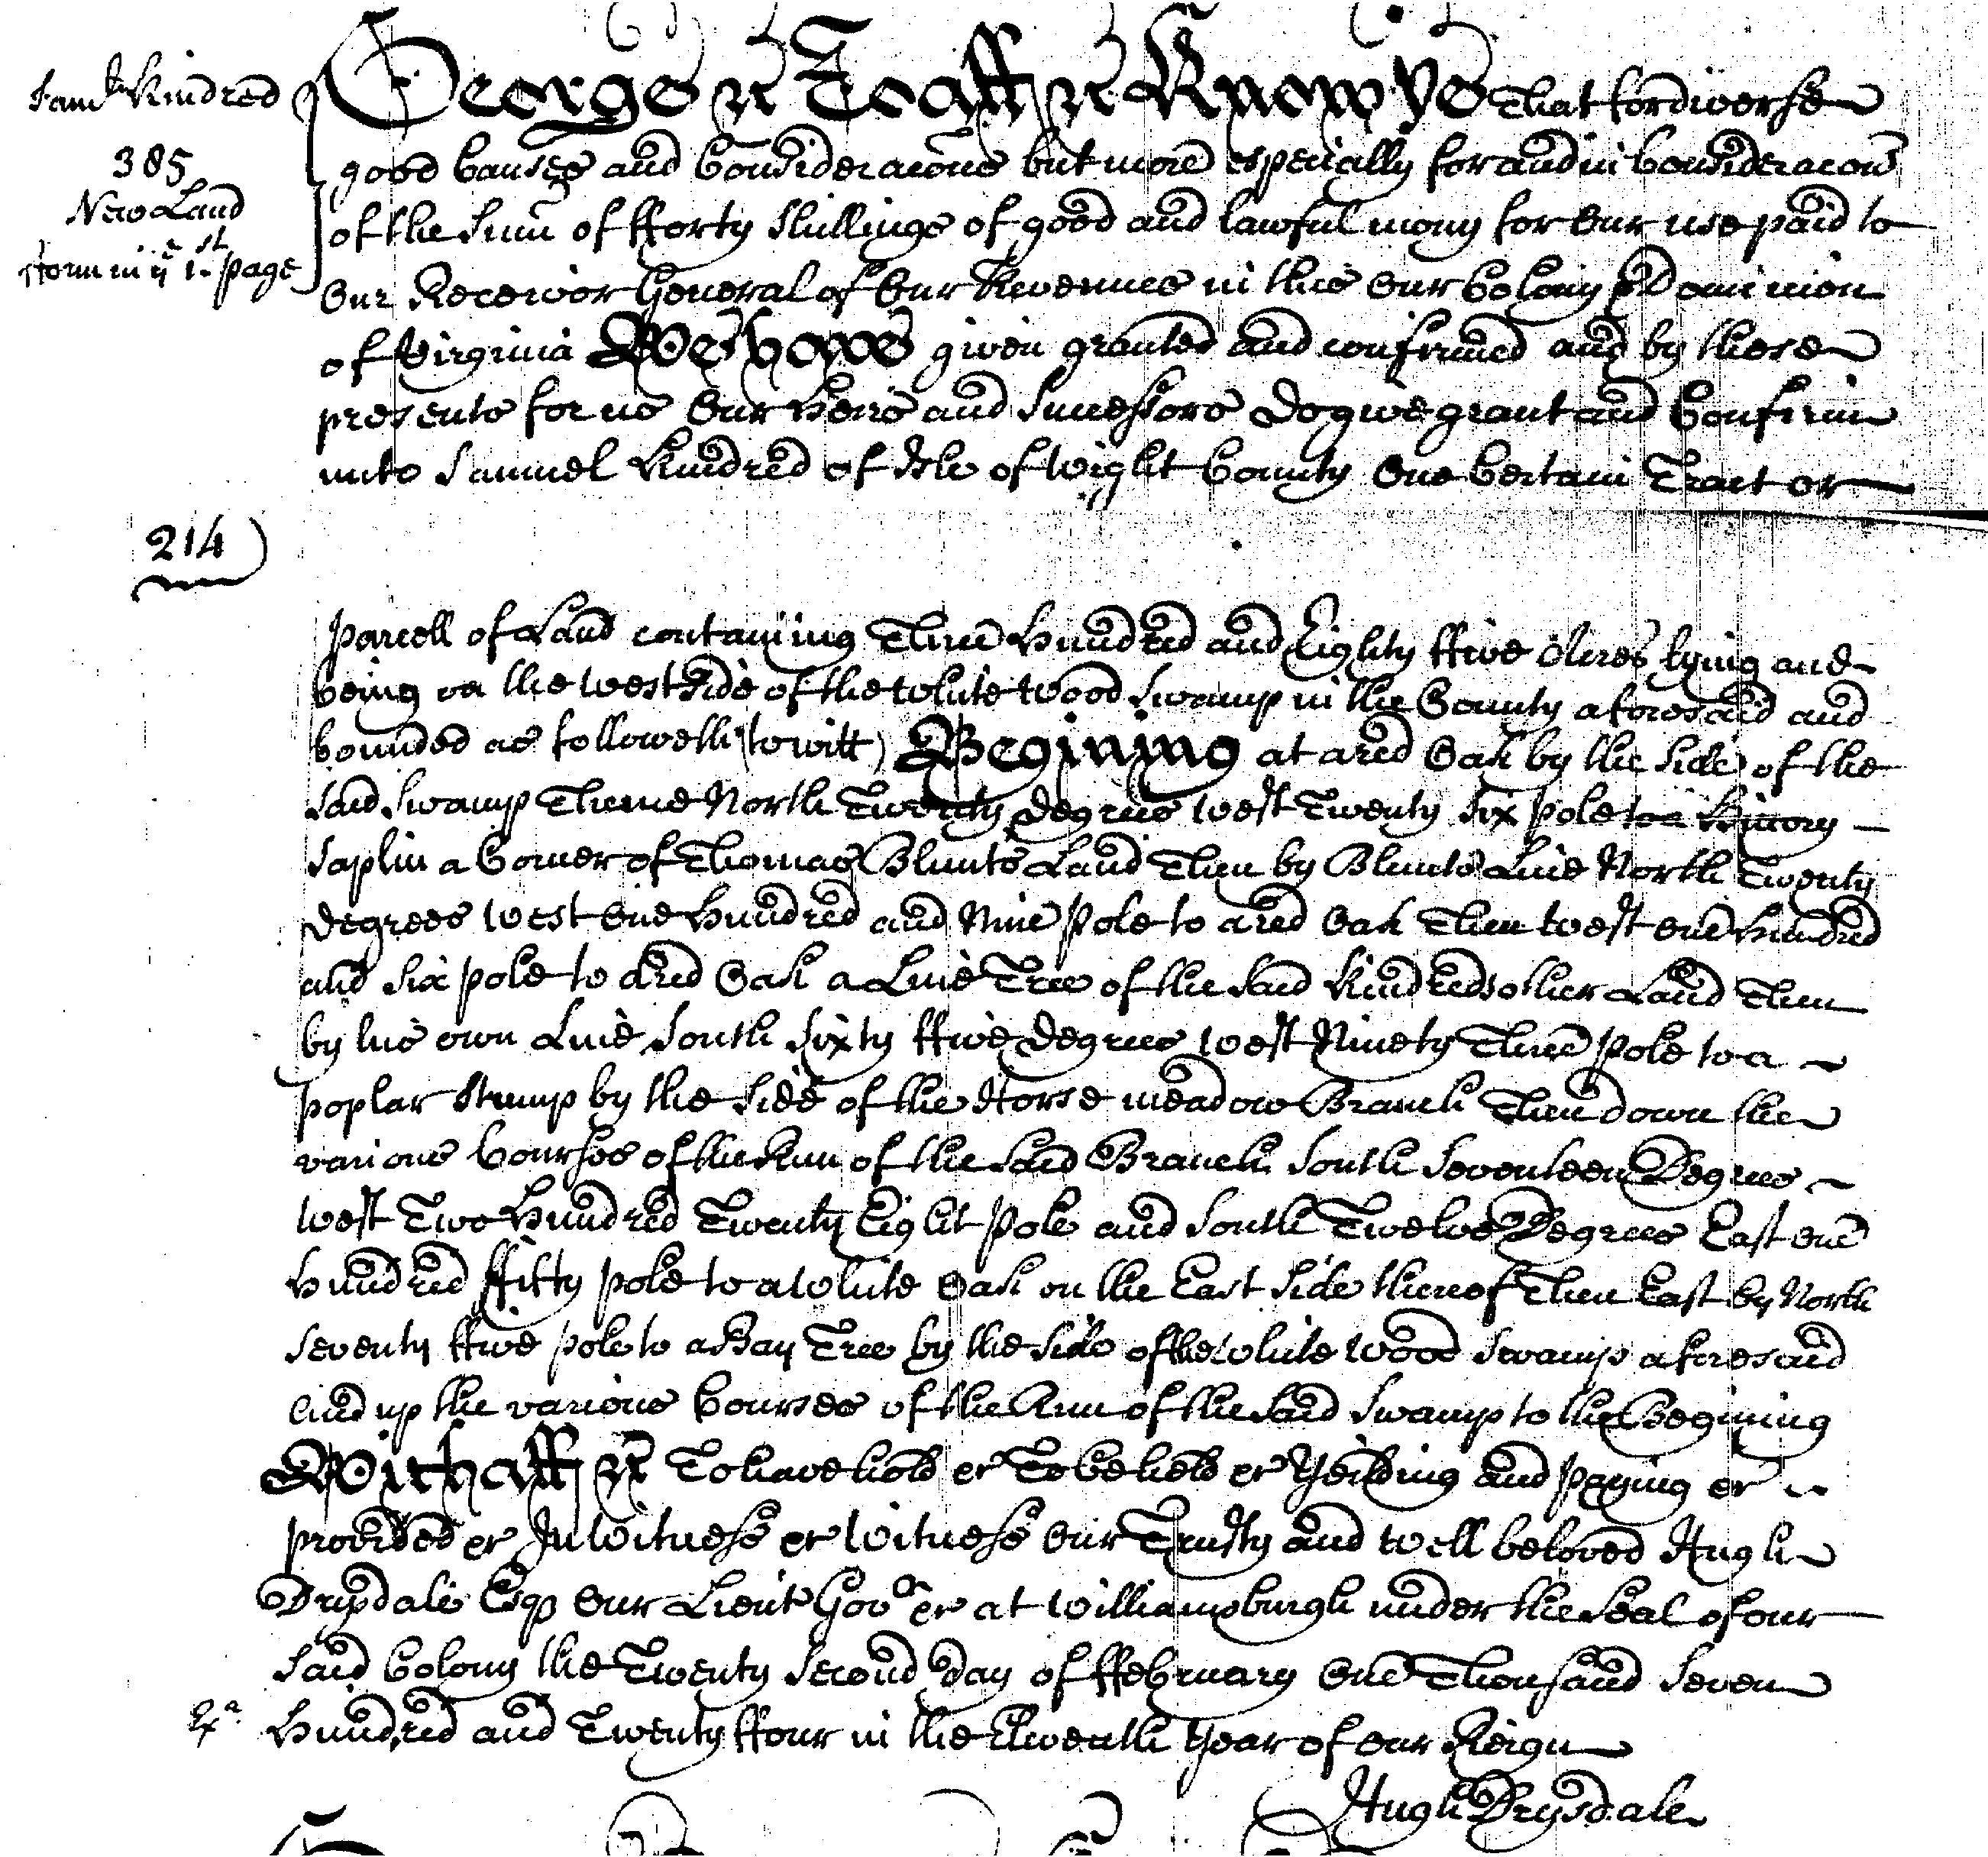 Saml. Kindred
385
New Land
Form in ye 1st page
George &c To all &c Know ye That for diverse
good Causes and Consideracons but more especially for and in Consideracon
of the Sum of fforty Shillings of good and lawful mony for Our use paid to
Our Receivor General of Our Revenues in this Our Colony & Dominion
of Virginia We have given granted and confirmed and by these
presents for us Our Heirs and Successors Do give grant and Confirm
unto Samuel Kindred of Isle of Wight County One Certain Tract or
214
parcell of Land containing Three Hundred and Eighty ffive Acres lying and
being on the West Side of the White Wood Swamp in the County aforesaid and
bounded as followeth (to witt) Begining at a red Oak by the Side of the
Said Swamp Thence North Twenty Degrees West Twenty Six pole to a Hicory
Saplin a Corner of Thomas Blunts Land Then by Blunts Line North Twenty
Degrees West One Hundred and Nine Pole to a red Oak Then West One Hundred
and Six pole to a red Oak a Line Tree of the Said Kindreds other Land Then
by his own Line South Sixty ffive Degrees West Ninety Three Pole to a
poplar Stump by the Side of the Horse meadow Branch Then down the
various Courses of the Run of the Said Branch South Seventeen Degrees
West Two Hundred Twenty Eight Pole and South Twelve Degrees East One
Hundred ffifty pole to a White Oak on the East Side thereof Then East by North
Seventy ffive pole to a Bay Tree by the Side of the White Wood Swamp aforesaid
and up the various Courses of the Run of the Said Swamp to the Begining
With all &c To have hold &c To be held &c Yeilding and paying &c
provided &c In Witness &c Witness Our Trusty and well beloved Hugh
Drysdale Esqr Our Lieut Govr &c at Williamsburgh under the Seal of our
Said Colony the Twenty Second Day of ffebruary One Thousand Seven
Exa. Hundred and Twenty ffour in the Eleventh Year of Our Reign
Hugh Drysdale